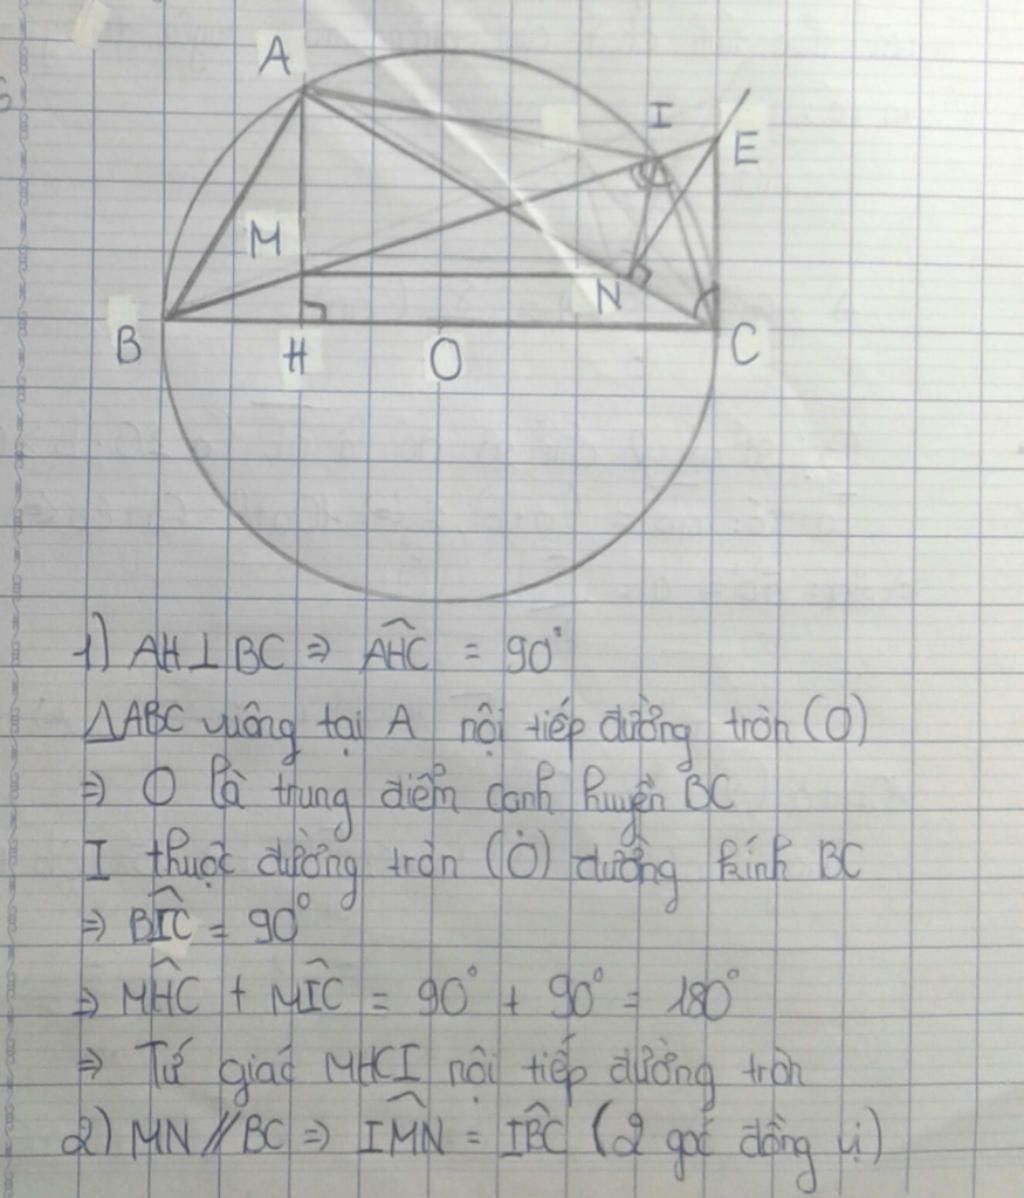 A
I
E
M
N
B
H
O
C
1) AH ⊥ BC ⇒ \widehat{AHC} = 90°
ΔABC vuông tại A nội tiếp đường tròn (O)
⇒ O là trung điểm cạnh huyền BC
I thuộc đường tròn (O) đường kính BC
⇒ \widehat{BIC} = 90°
⇒ \widehat{MHC} + \widehat{MIC} = 90° + 90° = 180°
⇒ Tứ giác MHCI nội tiếp đường tròn
2) MN // BC ⇒ \widehat{IMN} = \widehat{IBC} (2 góc đồng vị)